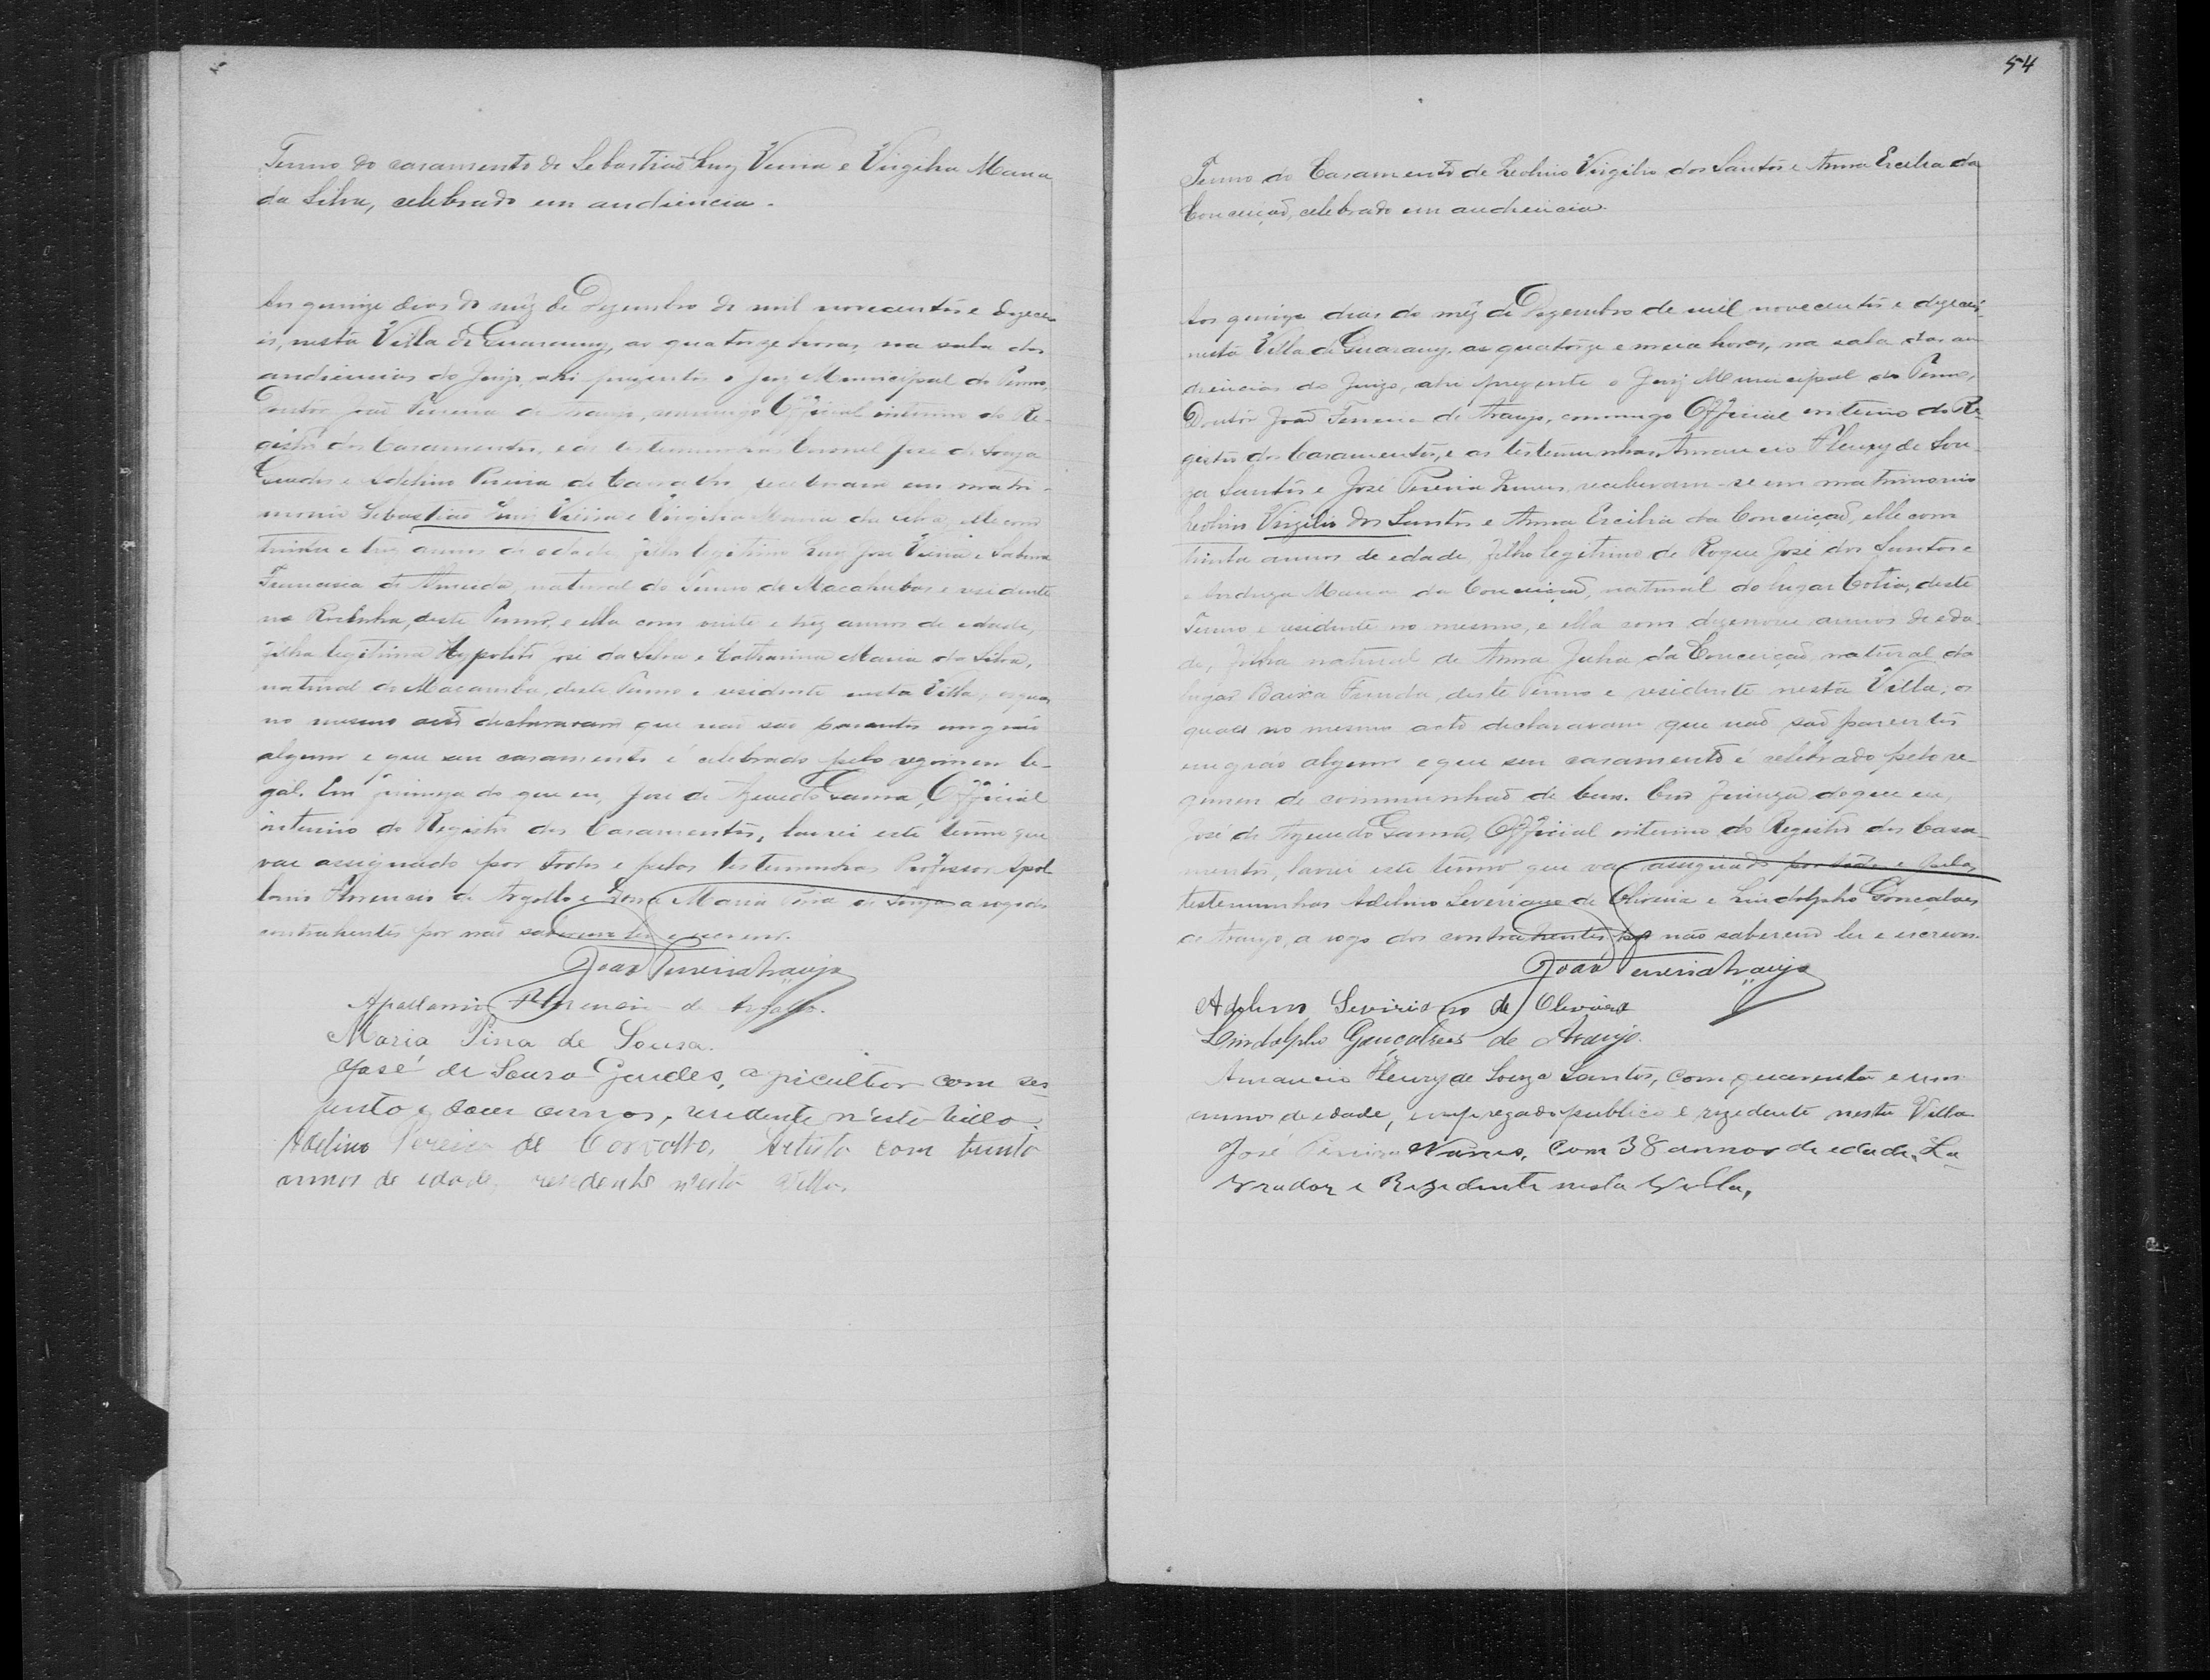 Termo do casamento de Sebastião Luiz Vieira e Virgilia Maria
da Silva, celebrado em audiencia.
Aos quinze dias do mêz de Dezembro de mil novecentos e dezese-
is, nesta Villa de Guarany, as quatorze horas, na sala das
audiencias do Juizo, ahi prezente o Juiz Municipal do Termo,
Doutor João Ferreira de Araujo, commigo Official interino do Re-
gistro dos Casamentos, e as testemunhas Coronel José de Souza
Guedes e Adelino Pereira de Carvalho, receberam em matri-
monio Sebastião Luiz Vieira e Virgilia Maria da Silva, elle com
trinta e trez annos de edade, filho legitimo Luiz José Vieira e Sabina
Francisca de Almeida, natural do Termo de Macahubas e residente
na Rocinha, deste Termo, e ella com vinte e trez annos de edade,
filha legitima Hypolito José da Silva e Catharina Maria da Silva,
natural de Macamba, deste Termo e residente nesta Villa, os quaes
no mesmo acto declararam que não são parentes em gráo
algum e que seu casamento é celebrado pelo regimen le-
gal. Em firmeza do que eu, José de Azevedo Gama, Official
interino do Registro dos Casamentos, lavrei este termo que
vae assignado por todos e pelas testemunhas Professor Apol-
lonio Florencio de Argollo e Dona Maria Pina de Souza a rogo dos
contrahentes por não saberem ler e escrever.
João Ferreira Araujo
Apollonio Florencio de Argollo.
Maria Pina de Sousa.
José de Souza Guedes, agricultor com ses-
senta e annos, residente n'esta Villa.
Adelino Pereira de Carvalho, Artista com trinta
annos de edade, residente n'esta Villa.
54
Termo do Casamento de Leolino Virgilio dos Santos e Anna Ercilia da
Conceição, celebrado em audiencia.
Aos quinze dias do mêz de Dezembro de mil novecentos e dezeseis,
nesta Villa de Guarany, as quatorze e meia horas, na sala das au
diencias do Juizo, ahi prezente o Juiz Municipal do Termo,
Doutor João Ferreira de Araujo, commigo Official interino do Re-
gistro dos Casamentos, e as testemunhas Amancio Fleury de Sou-
za Santos e José Pereira Nunes, receberam-se em matrimonio
Leolino Virgilio dos Santos e Anna Ercilia da Conceição, elle com
trinta annos de edade, filho legitimo de Roque José dos Santos e
e Maria da Conceição, natural do lugar Cotia, deste
Termo e residente no mesmo, e ella com dezenove annos de eda-
de, filha natural de Anna Julia da Conceição, natural do
lugar Baixa Funda, deste Termo e residente nesta Villa; os
quaes no mesmo acto declararam que não são parentes
em gráo algum e que seu casamento é celebrado pelo re-
gimen de communhão de bens. Em firmeza do que eu,
José de Azevedo Gama, Official interino do Registro dos Casa-
mentos, lavrei este termo que vae assignado por todos e pelas
testemunhas Adelino Severiano de Oliveira e Lindolpho Gonçalves
de Araujo, a rogo dos contrahentes por não saberem ler e escrever.
João Ferreira Araujo
Adelino Severiano de Oliveira
Lindolpho Gonçalves de Araujo.
Amancio Fleury de Souza Santos, com quarenta e um
annos de edade, empregado publico e rezedente nesta Villa
José Pereira Nunes, com 38 annos de edade, La
vrador e Rezidente nesta Villa,